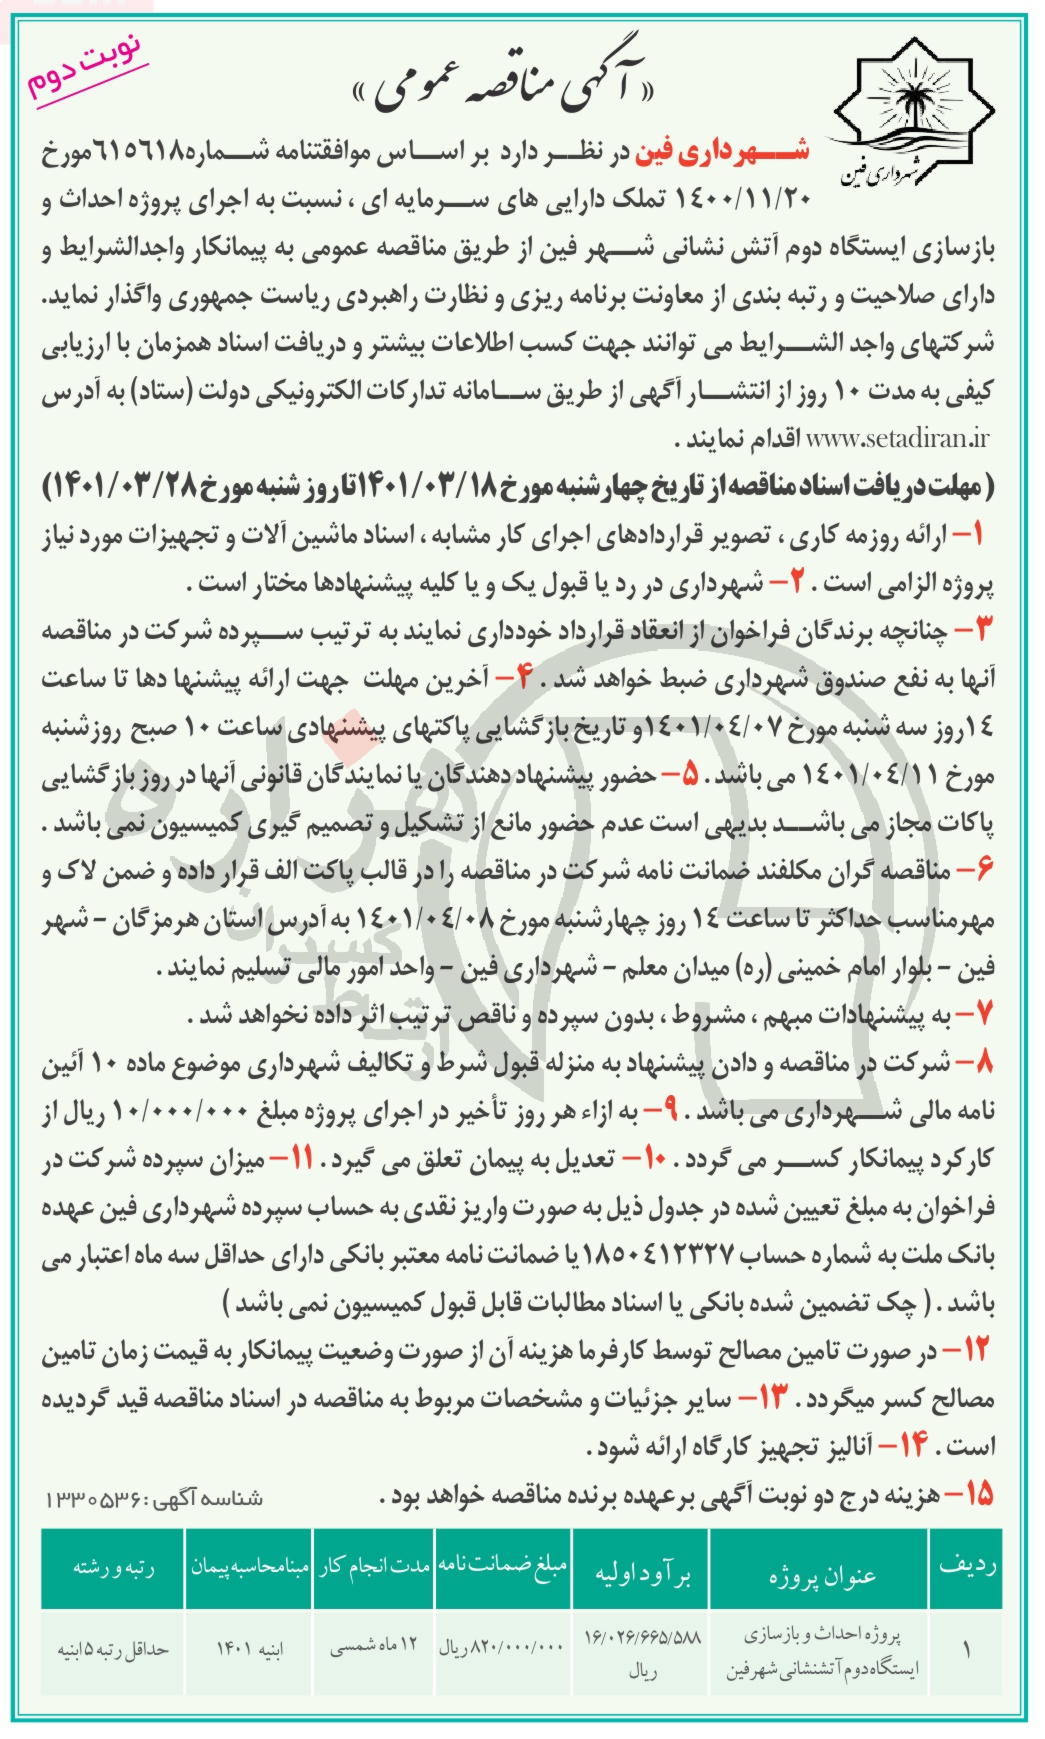 نوبت دوم
« آگهی مناقصه عمومی »
شهرداری فین
شهرداری فین در نظر دارد بر اساس موافقتنامه شماره۶۱۵۶۱۸مورخ
۱۴۰۰/۱۱/۲۰ تملک دارایی های سرمایه ای ، نسبت به اجرای پروژه احداث و
بازسازی ایستگاه دوم آتش نشانی شهر فین از طریق مناقصه عمومی به پیمانکار واجدالشرایط و
دارای صلاحیت و رتبه بندی از معاونت برنامه ریزی و نظارت راهبردی ریاست جمهوری واگذار نماید.
شرکتهای واجد الشرایط می توانند جهت کسب اطلاعات بیشتر و دریافت اسناد همزمان با ارزیابی
کیفی به مدت ۱۰ روز از انتشار آگهی از طریق سامانه تدارکات الکترونیکی دولت (ستاد) به آدرس
www.setadiran.ir اقدام نمایند .
( مهلت دریافت اسناد مناقصه از تاریخ چهارشنبه مورخ ۱۴۰۱/۰۳/۱۸تا روز شنبه مورخ ۱۴۰۱/۰۳/۲۸)
۱– ارائه روزمه کاری ، تصویر قراردادهای اجرای کار مشابه ، اسناد ماشین آلات و تجهیزات مورد نیاز
پروژه الزامی است . ۲– شهرداری در رد یا قبول یک و یا کلیه پیشنهادها مختار است .
۳– چنانچه برندگان فراخوان از انعقاد قرارداد خودداری نمایند به ترتیب سپرده شرکت در مناقصه
آنها به نفع صندوق شهرداری ضبط خواهد شد . ۴– آخرین مهلت جهت ارائه پیشنها دها تا ساعت
۱۴روز سه شنبه مورخ ۱۴۰۱/۰۴/۰۷و تاریخ بازگشایی پاکتهای پیشنهادی ساعت ۱۰ صبح روزشنبه
مورخ ۱۴۰۱/۰۴/۱۱ می باشد . ۵– حضور پیشنهاد دهندگان یا نمایندگان قانونی آنها در روز بازگشایی
پاکات مجاز می باشد بدیهی است عدم حضور مانع از تشکیل و تصمیم گیری کمیسیون نمی باشد .
۶– مناقصه گران مکلفند ضمانت نامه شرکت در مناقصه را در قالب پاکت الف قرار داده و ضمن لاک و
مهرمناسب حداکثر تا ساعت ۱۴ روز چهارشنبه مورخ ۱۴۰۱/۰۴/۰۸ به آدرس استان هرمزگان – شهر
فین – بلوار امام خمینی (ره) میدان معلم – شهرداری فین – واحد امور مالی تسلیم نمایند .
۷– به پیشنهادات مبهم ، مشروط ، بدون سپرده و ناقص ترتیب اثر داده نخواهد شد .
۸– شرکت در مناقصه و دادن پیشنهاد به منزله قبول شرط و تکالیف شهرداری موضوع ماده ۱۰ آئین
نامه مالی شهرداری می باشد . ۹– به ازاء هر روز تأخیر در اجرای پروژه مبلغ ۱۰/۰۰۰/۰۰۰ ریال از
کارکرد پیمانکار کسر می گردد . ۱۰– تعدیل به پیمان تعلق می گیرد . ۱۱– میزان سپرده شرکت در
فراخوان به مبلغ تعیین شده در جدول ذیل به صورت واریز نقدی به حساب سپرده شهرداری فین عهده
بانک ملت به شماره حساب ۱۸۵۰۴۱۲۳۲۷یا ضمانت نامه معتبر بانکی دارای حداقل سه ماه اعتبار می
باشد . ( چک تضمین شده بانکی یا اسناد مطالبات قابل قبول کمیسیون نمی باشد )
۱۲– در صورت تامین مصالح توسط کارفرما هزینه آن از صورت وضعیت پیمانکار به قیمت زمان تامین
مصالح کسر میگردد . ۱۳– سایر جزئیات و مشخصات مربوط به مناقصه در اسناد مناقصه قید گردیده
است . ۱۴– آنالیز تجهیز کارگاه ارائه شود .
۱۵– هزینه درج دو نوبت آگهی بر عهده برنده مناقصه خواهد بود .
شناسه آگهی :۱۳۳۰۵۳۶
ردیف عنوان پروژه برآورد اولیه مبلغ ضمانت نامه مدت انجام کار مبنا محاسبه پیمان رتبه و رشته
۱ پروژه احداث و بازسازی ایستگاه دوم آتشنشانی شهر فین ۱۶/۰۲۶/۶۶۵/۵۸۸ ریال ۸۲۰/۰۰۰/۰۰۰ ریال ۱۲ ماه شمسی ابنیه ۱۴۰۱ حداقل رتبه ۵ ابنیه
هزاره
گستران
ارتباط